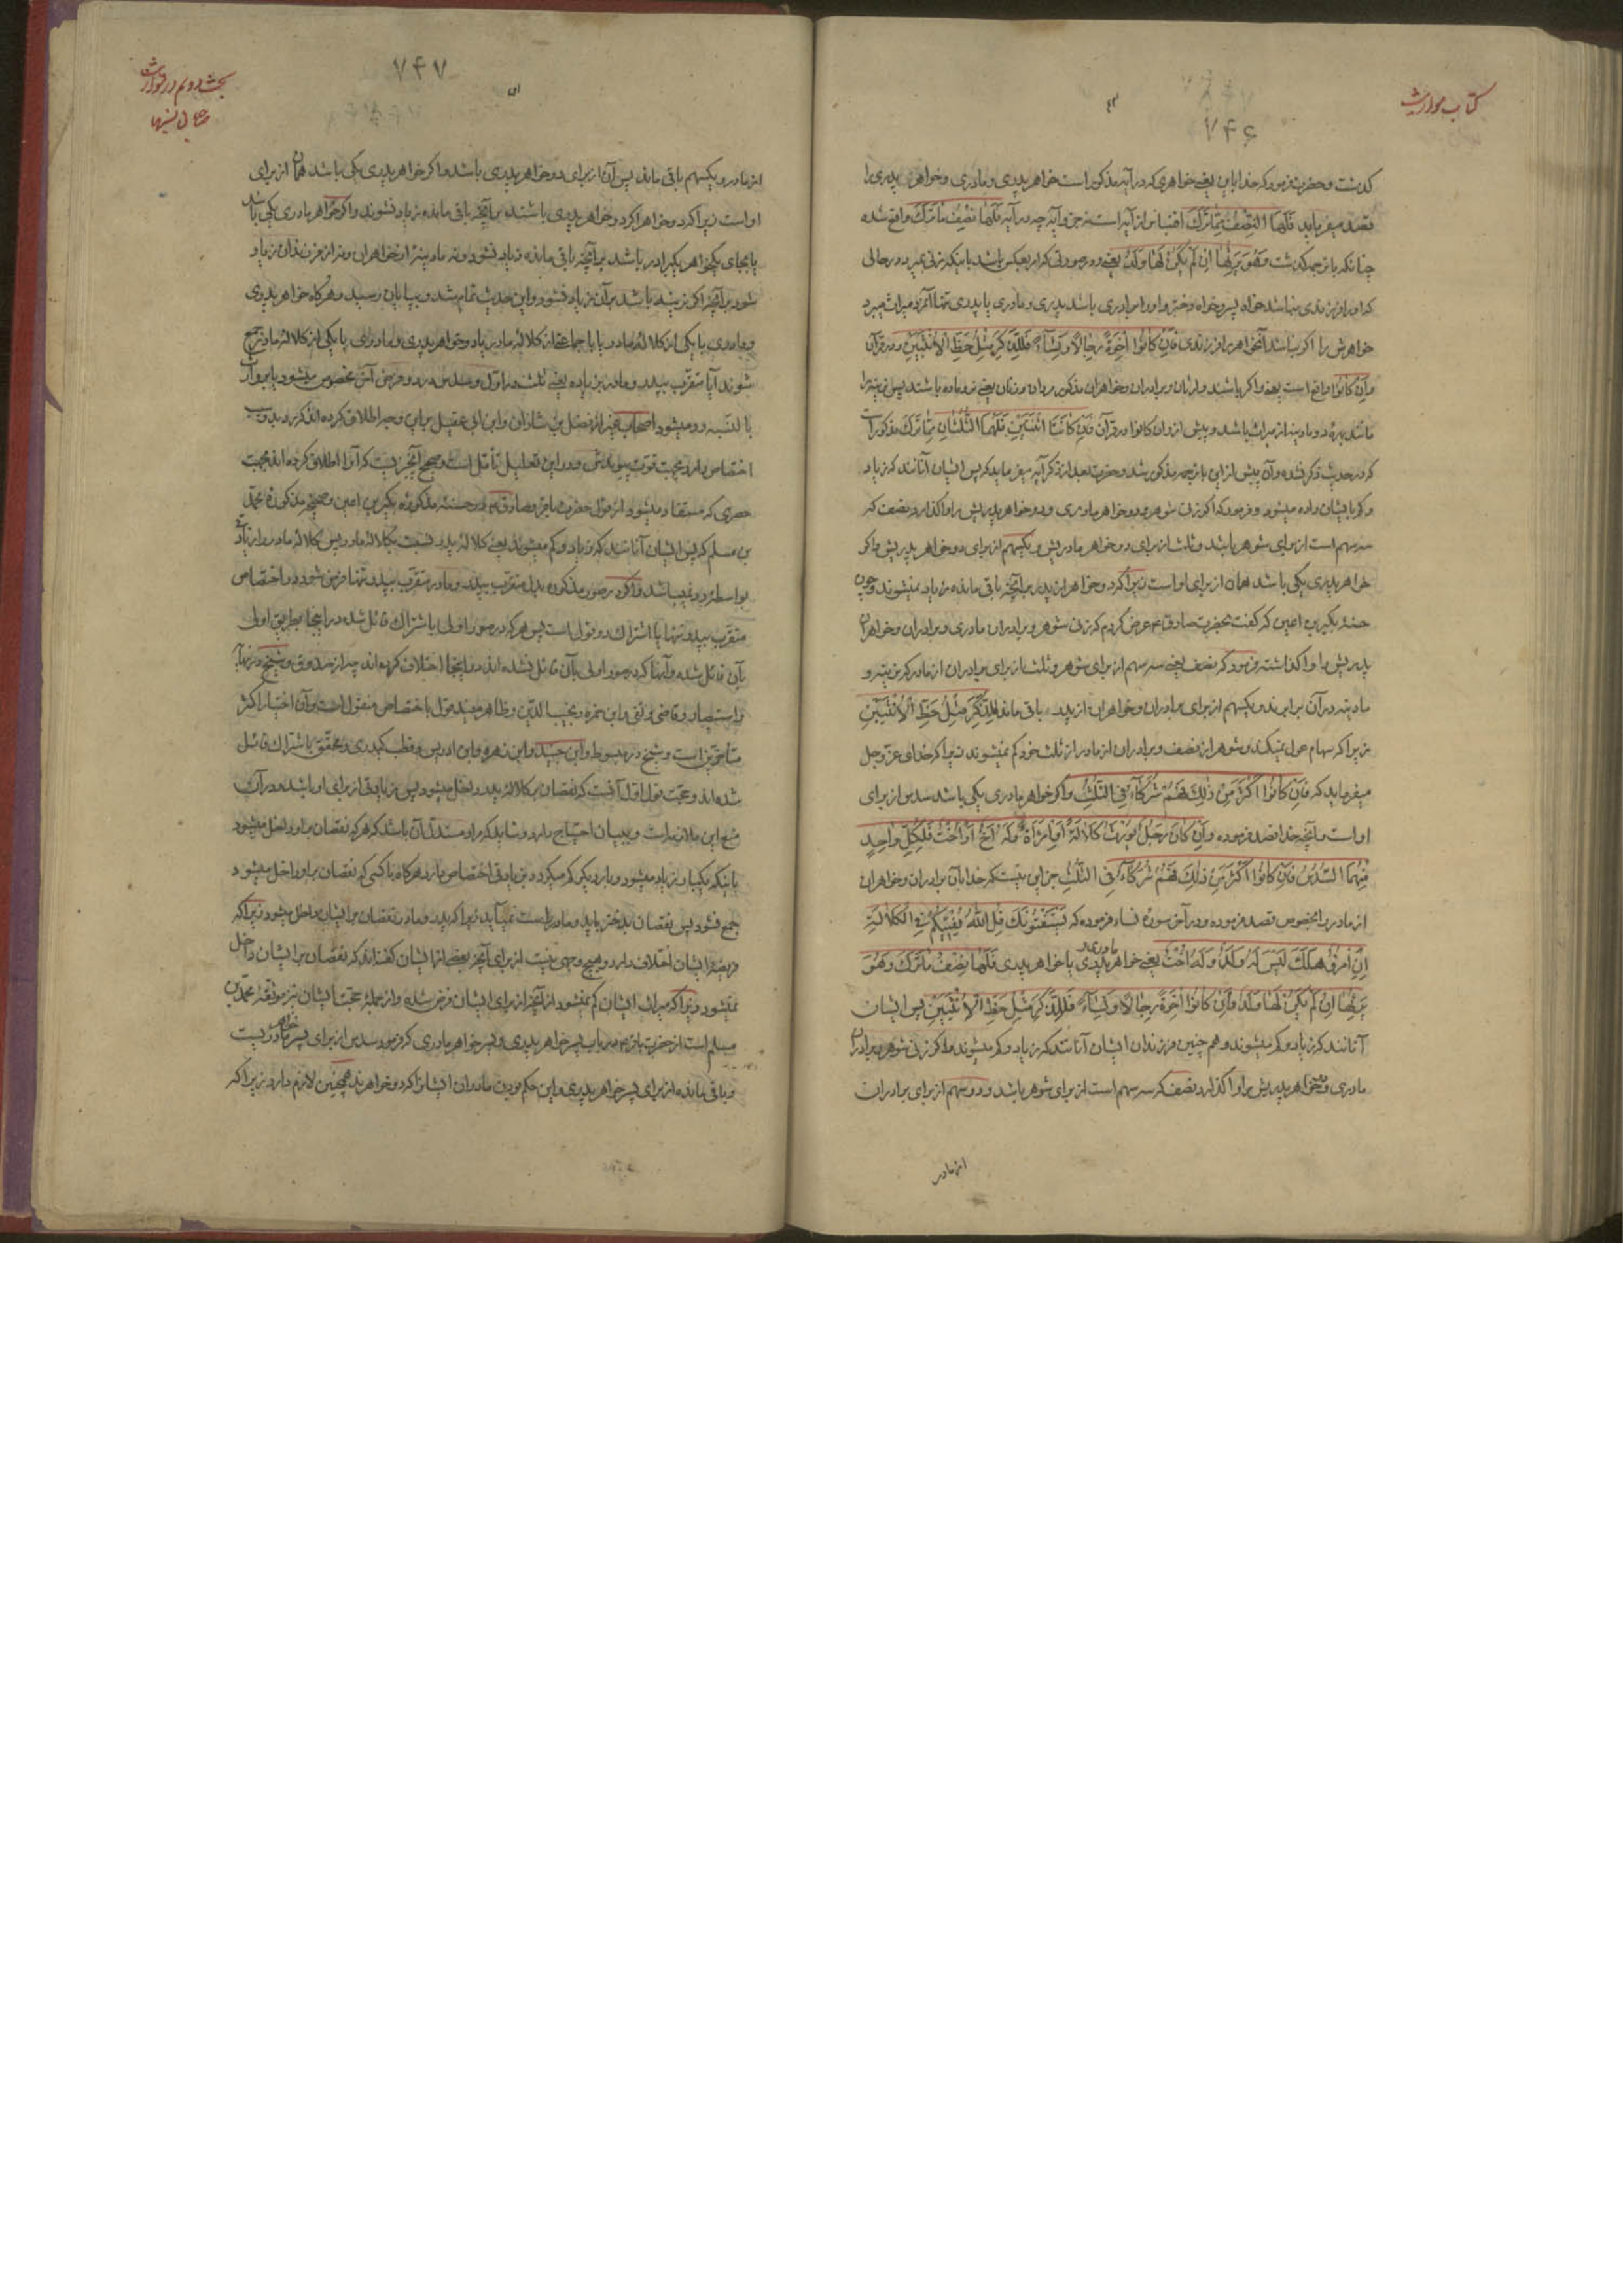 کتاب مواریث
۷۴۶
کذشت و حضرت فرمود که خدا باین یعنی خواهری که در آیه مذکور است خواهر پدری و مادری و خواهر پدری را
قصد میفرماید فَلَهَا النِّصْفُ مِمَّا تَرَكَ اقتباس از آیه است نه جزو آیه چه در آیه فَلَهَا نِصْفُ مَا تَرَكَ واقع شده
چنانکه با ترجمه کذشت وَهُوَ يَرِثُهَا اِنْ لَمْ يَكُنْ لَهَا وَلَدٌ یعنی و در صورتی که امر بعکس باشد باینکه زنی بمیرد در حالی
که او را فرزندی نباشد خواه پسر و خواه دختر و او را برادری باشد پدری و مادری یا پدری تنها آنمرد میراث میبرد
خواهرش را اکر نباشد آنخواهر را فرزندی فَاِنْ كَانُوا اِخْوَةً رِجَالاً وَنِسَاءً فَلِلذَّكَرِ مِثْلُ حَظِّ الْاُنْثَيَيْنِ و در قرآن
وَاِنْ كَانُوا واقع است یعنی و اکر باشند وارثان برادران و خواهران مذکور مردان و زنان یعنی نر و ماده باشند پس نرینه را
مانند بهرهٔ دو مادینه از میراث باشد و پیش از وان کانوا در قرآن فَاِنْ كَانَتَا اثْنَتَيْنِ فَلَهُمَا الثُّلُثَانِ مِمَّا تَرَكَ مذکور است
که در حدیث ذکر نشده و آن پیش از این با ترجمه مذکور شد و حضرت بعد از ذکر آیه میفرماید که پس ایشان آنانند که زیاد
و کم بایشان داده میشود و فرمود که اکر زنی شوهر و دو خواهر مادری و دو خواهر پدریش را واکذارد نصف که
سه سهم است از برای شوهر باشد و ثلث از برای دو خواهر مادریش و یکسهم از برای دو خواهر پدریش و اکر
خواهر پدری یکی باشد همان از برای او است زیرا که دو خواهر از پدر بر آنچه باقی مانده زیاد نمیشوند و چون
حسنهٔ بکیر بن اعین که کفت بحضرت صادق ع عرض کردم که زنی شوهر و برادران مادری و برادران و خواهران
پدریش را واکذاشته فرمود که نصف یعنی سه سهم از برای شوهر و ثلث از برای برادران از مادر که نرینه و
مادینه در آن برابرند و یکسهم از برای برادران و خواهران از پدر باقی ماند لِلذَّكَرِ مِثْلُ حَظِّ الْاُنْثَيَيْنِ
زیرا که سهام عول نمیکند و شوهر از نصف و برادران از مادر از ثلث خود کم نمیشوند زیرا که خدای عزّ و جل
میفرماید که فَاِنْ كَانُوا اَكْثَرَ مِنْ ذٰلِكَ فَهُمْ شُرَكَاءُ فِي الثُّلُثِ و اکر خواهر مادری یکی باشد سدس از برای
او است و آنچه خدا قصد فرموده وَاِنْ كَانَ رَجُلٌ يُورَثُ كَلَالَةً اَوِ امْرَأَةٌ وَلَهُ اَخٌ اَوْ اُخْتٌ فَلِكُلِّ وَاحِدٍ
مِنْهُمَا السُّدُسُ فَاِنْ كَانُوا اَكْثَرَ مِنْ ذٰلِكَ فَهُمْ شُرَكَاءُ فِي الثُّلُثِ جز این نیست که خدا بآن برادران و خواهران
از مادر را بخصوص قصد فرموده و در آخر سورهٔ نساء فرموده که يَسْتَفْتُونَكَ قُلِ اللهُ يُفْتِيكُمْ فِي الْكَلَالَةِ
اِنِ امْرُؤٌ هَلَكَ لَيْسَ لَهُ وَلَدٌ وَلَهُ اُخْتٌ یعنی خواهر پدری و مادری یا خواهر پدری فَلَهَا نِصْفُ مَا تَرَكَ وَهُوَ
يَرِثُهَا اِنْ لَمْ يَكُنْ لَهَا وَلَدٌ وَاِنْ كَانُوا اِخْوَةً رِجَالاً وَنِسَاءً فَلِلذَّكَرِ مِثْلُ حَظِّ الْاُنْثَيَيْنِ پس ایشان
آنانند که زیاد و کم میشوند و هم چنین فرزندان ایشان آنانند که زیاد و کم میشوند و اکر زنی شوهر و برادران
مادری و دو خواهر پدریش را واکذارد نصف که سه سهم است از برای شوهر باشد و دو سهم از برای برادران
از مادر
بحث دویم در
۷۴۷
از مادر و یکسهم باقی ماند پس آن از برای دو خواهر پدری باشد و اکر خواهر پدری یکی باشد همان از برای
او است زیرا که دو خواهر اکر دو خواهر پدری باشند بر آنچه باقی مانده زیاد نشوند و اکر خواهر مادری یکی باشد
یا بجای یکخواهر یکبرادر باشد بر آنچه باقی مانده زیاد نشود و نه مادینهٔ از خواهران و نه از فرزندان زیاد
شود بر آنچه اکر نرینه باشد بر آن زیاد نشود و این حدیث تمام شد و بپایان رسید و هر کاه خواهر پدری
و مادری با یکی از کلالهٔ مادر یا با جماعتی از کلالهٔ مادر یا دو خواهر پدری و مادری با یکی از کلالهٔ مادر جمع
شوند آیا متقرّب بپدر و مادر بزیاده یعنی ثلث در اوّل و سدس در دو فرض آخر مخصوص میشود یا بر وارث
بالنسبه رد میشود اصحاب غیر از فضل بن شاذان و ابن ابی عقیل بر این وجه اطلاق کرده اند که رد بدو سبب
اختصاص دارد بجهت قوّت پیوندش و در این تعلیل تأمّل است و صحیح آنچیزیست که آنرا اطلاق کرده اند بجهت
حصری که مستفاد میشود از قول حضرت باقر و صادق ع در حسنهٔ مذکورهٔ بکیر بن اعین و صحیحهٔ مذکورهٔ محمّد
بن مسلم که پس ایشان آنانند که زیاد و کم میشوند یعنی کلالهٔ پدر نسبت بکلالهٔ مادر پس کلالهٔ مادر را زیادتی
بواسطهٔ رد نمیباشد و اکر در صور مذکوره بدل متقرّب بپدر و مادر متقرّب بپدر تنها فرض شود در اختصاص
متقرّب بپدر تنها یا اشتراک دو قول است پس هر که در صور اولی باشتراک قائل شده در اینجا بطریق اولی
بآن قائل شده و آنها که در صور اولی بآن قائل نشده اند در اینجا اختلاف کرده اند چه از صدوق و شیخ در نهایه
و استبصار و قاضی و تقی و ابن حمزه و نجیب الدّین و ظاهر مفید قول باختصاص منقول است و آن اختیار اکثر
متأخّرین است و شیخ در مبسوط و ابن جنید و ابن زهره و ابن ادریس و قطب کیدری و محقّق باشتراک قائل
شده اند و حجّت قول اوّل آنست که نقصان بر کلالهٔ پدر داخل میشود پس زیادتی از برای او باشد و در آن
منع این ملازمه است و ببیان احتیاج دارد و شاید که مراد مستدلّ آن باشد که هر که نقصان بر او داخل میشود
باینکه یکبار زیاد میشود و بار دیکر کم میکردد بزیادتی اختصاص دارد هر کاه با کسی که نقصان بر او داخل میشود
جمع نشود پس نقصان بدختر یابد و مادر راست نمیآید زیرا که پدر و مادر نقصان بر ایشان داخل میشود زیرا که
فریضهٔ ایشان اختلاف دارد و هیچ وجهی نیست از برای آنچه بعضی از ایشان کفته اند که نقصان بر ایشان داخل
نمیشود زیرا که میراث ایشان کم نمیشود از آنچه از برای ایشان فرض شده و از جملهٔ حجّت ایشان نیز موثقهٔ محمّد بن
مسلم است از حضرت باقر ع در باب پسر خواهر پدری و پسر خواهر مادری که فرمود سدس از برای پسر خواهر مادریست
و باقی مانده از برای پسر خواهر پدری و این حکم بودن مادران ایشانرا که دو خواهرند همچنین لازم دارد زیرا که